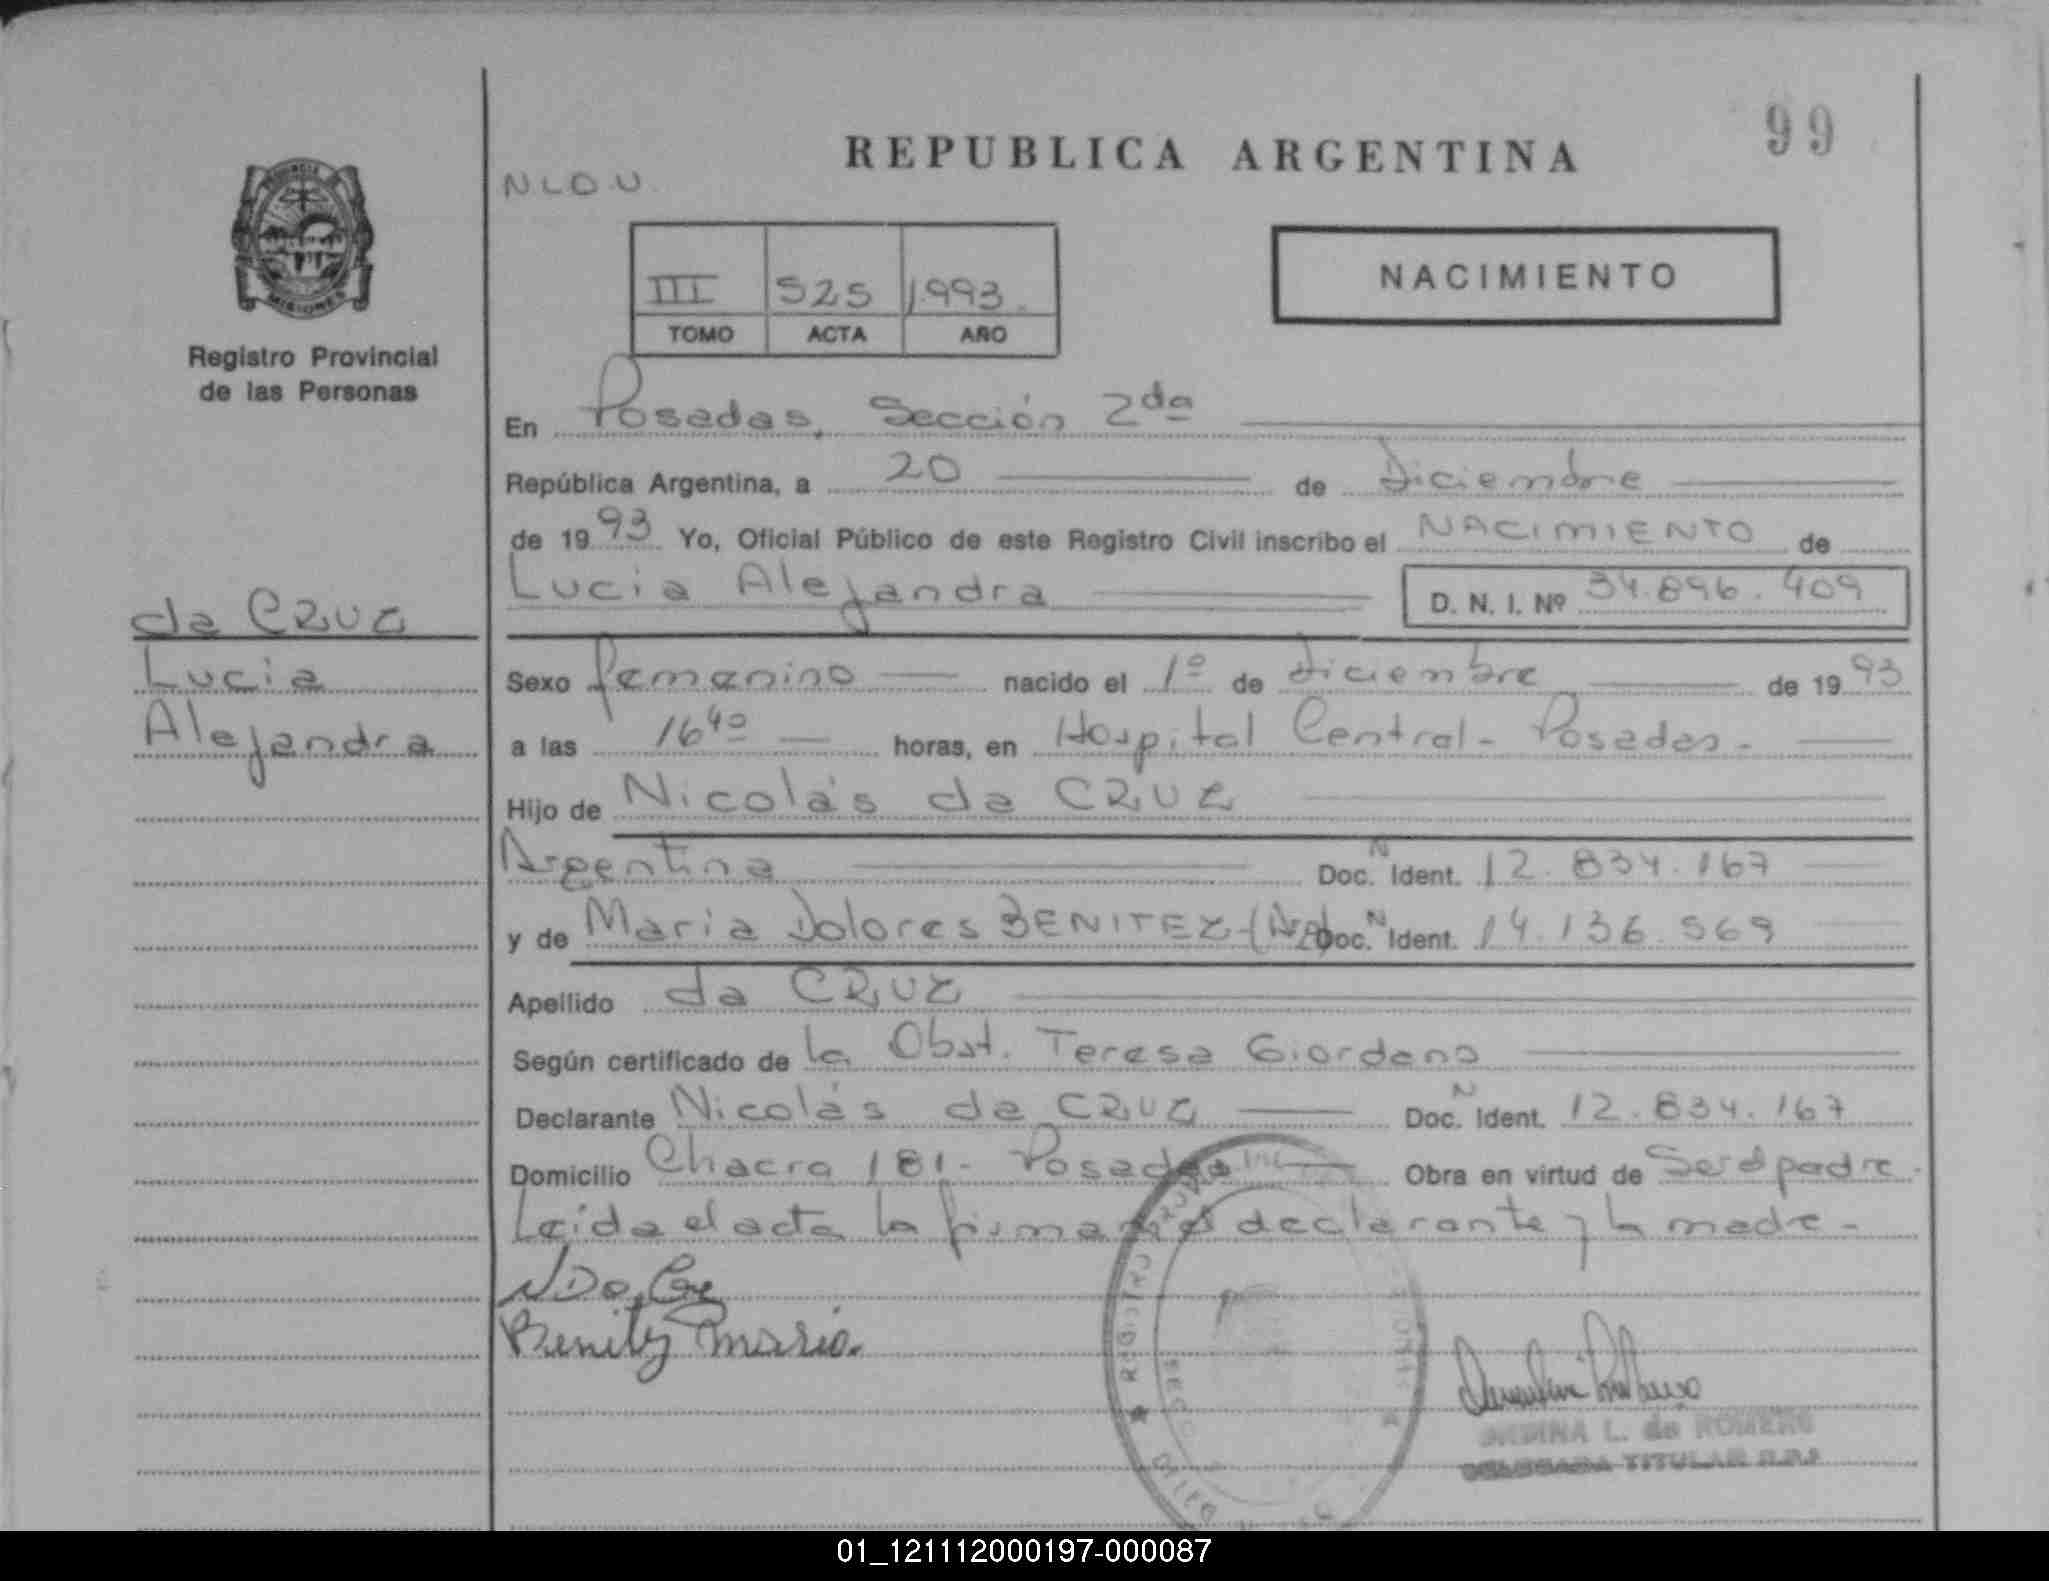 99
REPUBLICA ARGENTINA
N L D U
NACIMIENTO
III 525 1993.
TOMO ACTA AÑO
PROVINCIA
MISIONES
Registro Provincial
de las Personas
En Posadas, Sección 2da
República Argentina, a 20 de Diciembre
de 1993 Yo, Oficial Público de este Registro Civil inscribo el NACIMIENTO de
Lucia Alejandra D. N. I. Nº 34.896.409
da CRUZ
Lucia
Alejandra
Sexo femenino nacido el 1º de diciembre de 1993
a las 16 40 horas, en Hospital Central - Posadas -
Hijo de Nicolás da CRUZ
Argentina Doc. N Ident. 12.834.167
y de Maria Dolores BENITEZ - (Arg) Doc. N Ident. 14.136.569
Apellido da CRUZ
Según certificado de la Obst. Teresa Giordano
Declarante Nicolás da CRUZ Doc. N Ident. 12.834.167
Domicilio Chacra 181 - Posadas Obra en virtud de Ser el padre.
Leida el acta la firman el declarante y la madre -
Benitez Maria.
L. de ROMERO
TITULAR R.P.P
REGISTRO
01_121112000197-000087